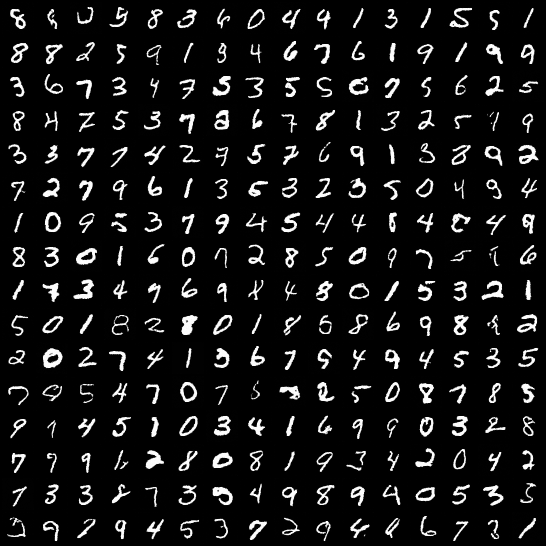 8 9 0 5 8 3 6 0 4 9 1 3 1 5 5 1
8 8 2 5 9 1 3 4 6 7 6 1 9 1 9 9
3 6 7 3 4 7 5 3 5 5 0 7 5 6 2 5
8 4 7 5 3 7 8 6 7 8 1 3 2 5 9 9
3 3 7 7 4 2 7 5 7 6 9 1 3 8 9 2
7 2 7 9 6 1 3 5 3 2 3 5 0 4 9 4
1 0 9 5 3 7 9 4 5 4 4 8 4 8 4 9
8 3 0 1 6 0 7 2 8 5 0 9 7 5 1 6
1 7 3 4 9 6 9 8 4 8 0 1 5 3 2 1
5 0 1 8 2 8 0 1 8 6 8 6 9 8 9 2
2 0 2 7 4 1 3 6 7 5 4 9 4 5 3 5
7 0 5 4 7 0 7 5 2 5 0 8 7 8 5
9 1 4 5 1 0 3 4 1 6 9 9 0 3 2 8
7 7 9 6 2 8 0 8 1 9 3 4 2 0 4 2
7 3 3 8 7 3 9 4 9 8 9 4 0 5 3 3
3 9 7 9 4 5 3 7 2 9 4 6 7 3 1